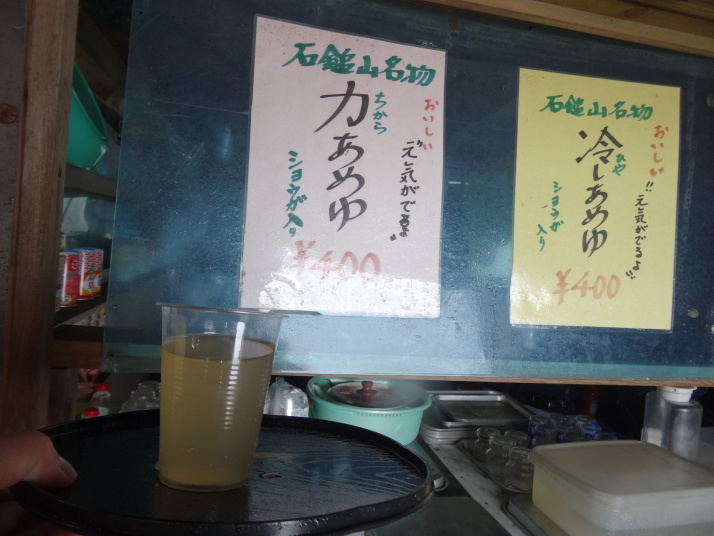 石鎚山名物
おいしい
ちから
力あめゆ
"元気がでるよ"
ショウガ入り
¥400
石鎚山名物
おいしい!!
ひや
冷しあめゆ
"元気がでるよ"
ショウガ
入り
¥400